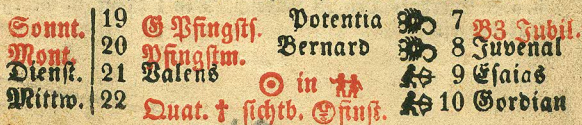 Sonnt. 19 G Pfingstf. Potentia 7 B3 Jubil.
Mont. 20 Pfingstm. Bernard 8 Juvenal
Dienst. 21 Valens ☉ in ♊ 9 Esaias
Mittw. 22 Quat. † sichtb. finst. 10 Gordian